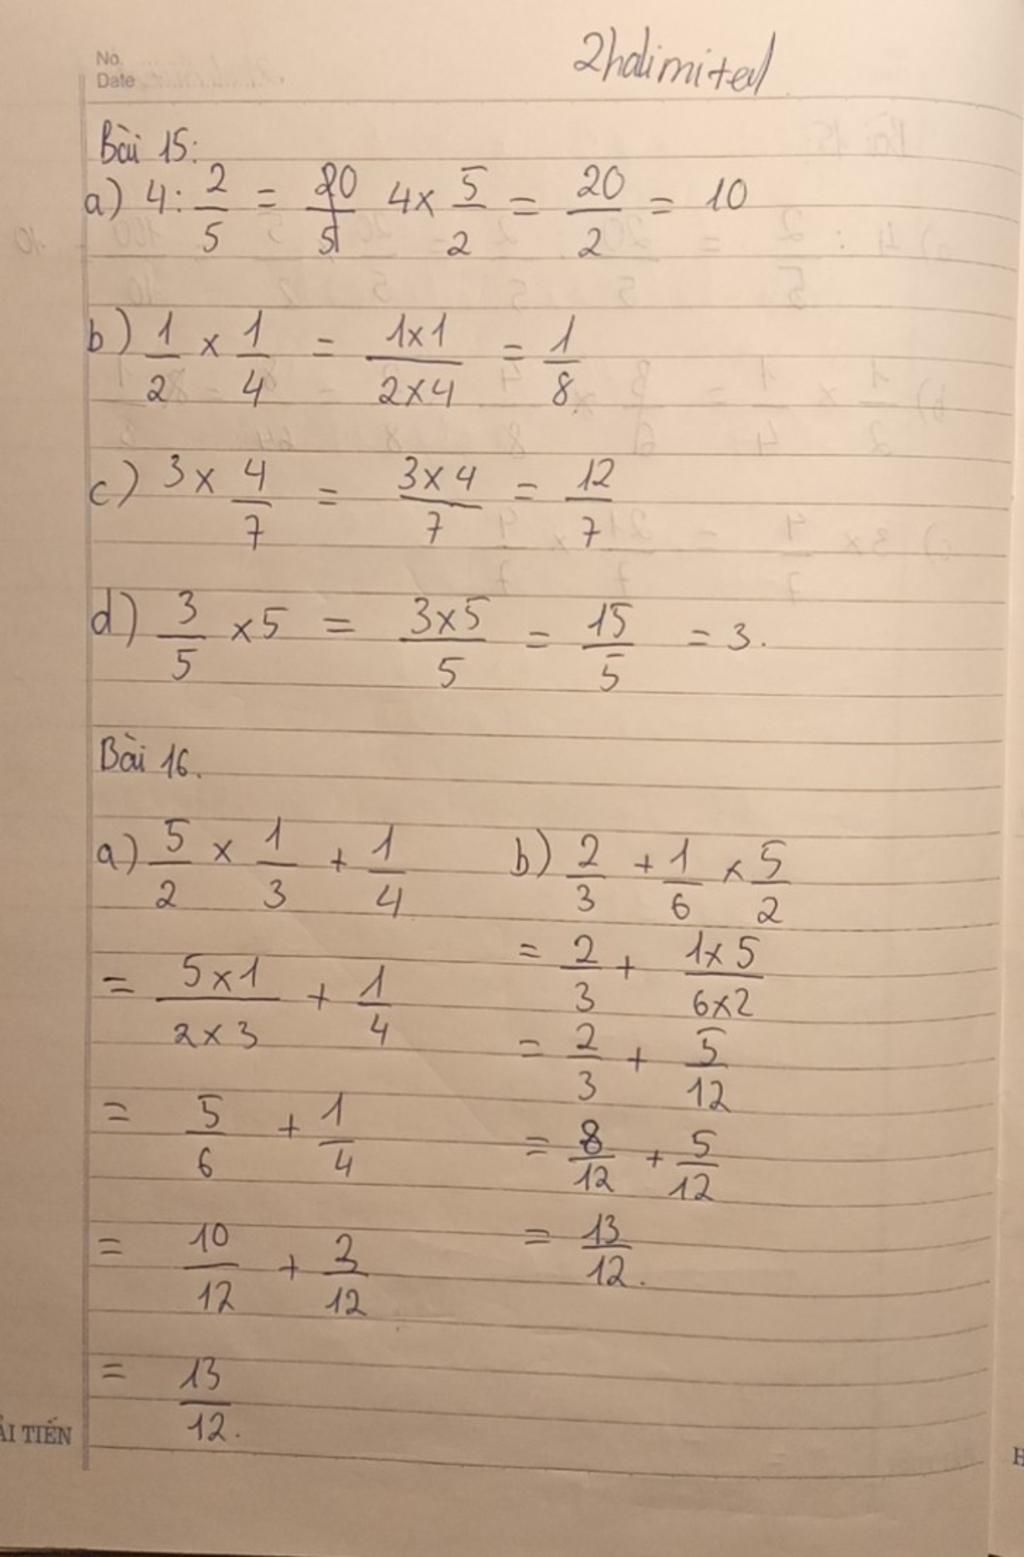 No.
Date
2halimited
Bài 15:
a) 4 : 2/5 = 20/5 4 x 5/2 = 20/2 = 10
b) 1/2 x 1/4 = 1x1/2x4 = 1/8
c) 3 x 4/7 = 3x4/7 = 12/7
d) 3/5 x 5 = 3x5/5 = 15/5 = 3.
Bài 16.
a) 5/2 x 1/3 + 1/4
= 5x1/2x3 + 1/4
= 5/6 + 1/4
= 10/12 + 3/12
= 13/12.
b) 2/3 + 1/6 x 5/2
= 2/3 + 1x5/6x2
= 2/3 + 5/12
= 8/12 + 5/12
= 13/12.
ẢI TIẾN
H